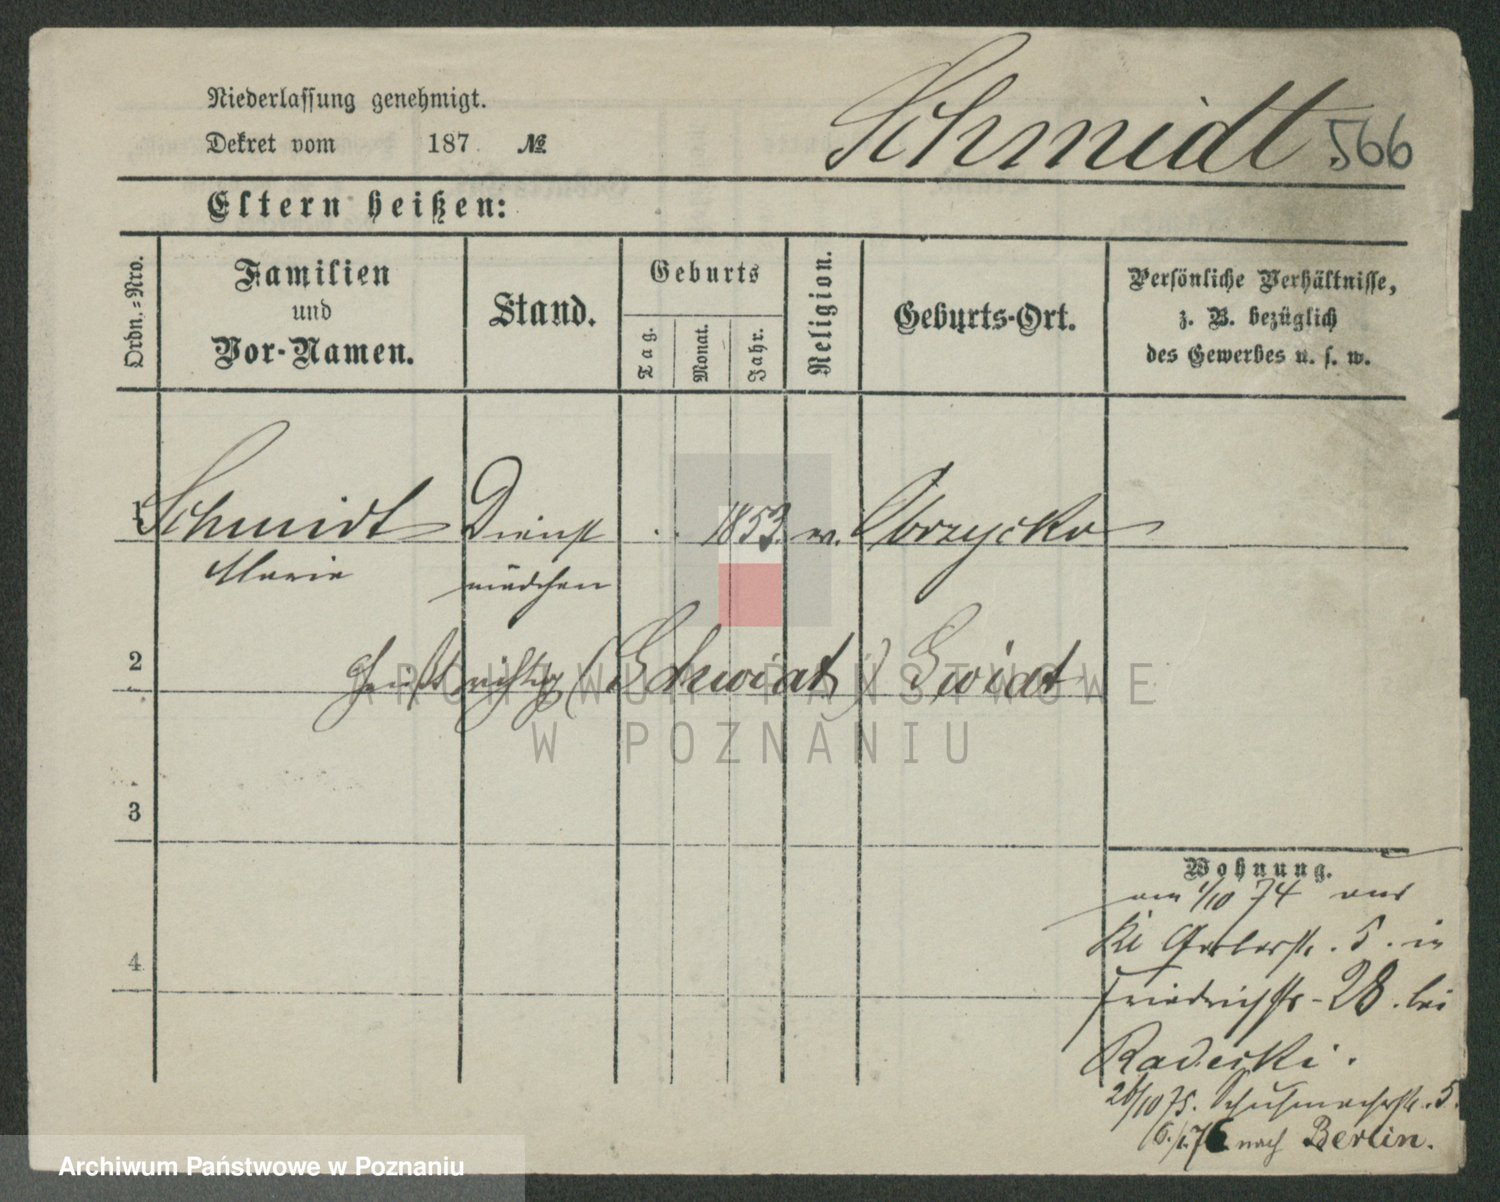 Niederlassung genehmigt.
Dekret vom 187 №
Schmidt 566
Eltern heißen:
Ordn.-Nro.
Familien
und
Vor-Namen.
Stand.
Geburts
Tag.
Monat.
Jahr.
Religion.
Geburts-Ort.
Persönliche Verhältnisse,
z. B. bezüglich
des Gewerbes u. s. w.
1 Schmidt Dienst 1853. ev. Obrzycko
Marie mädchen
2 heißt richtig (Schwidt) Swidt
ARCHIWUM PAŃSTWOWE
W POZNANIU
3
Wohnung.
am 1/10 74 aus
4 Kl Gerberstr. 5. in
Friedrichstr - 28. bei
Radecki.
26/10 75. Schuhmacherstr. 5.
nach Berlin.
Archiwum Państwowe w Poznaniu